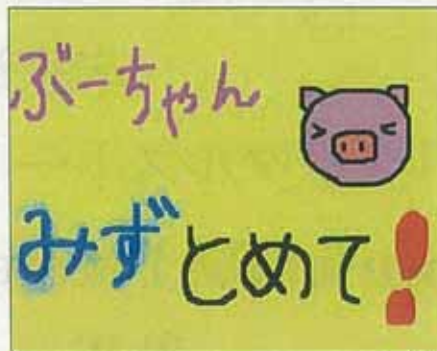 ぶーちゃん
みずとめて!